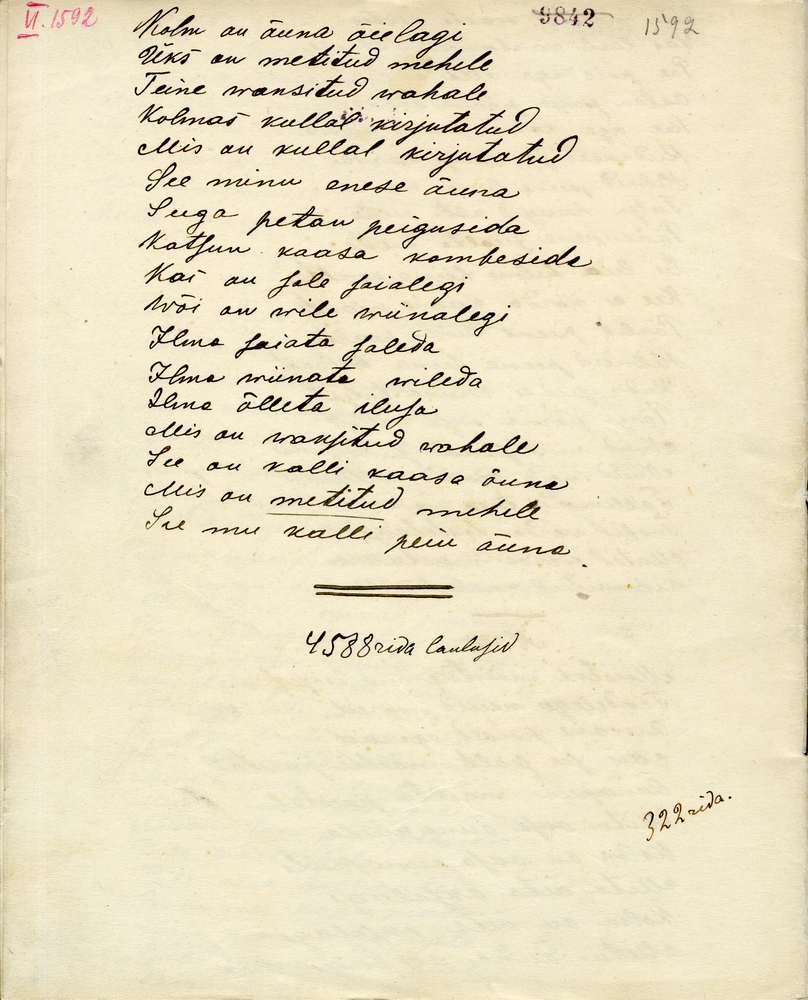 VI. 1592
9842
1592
Kolm on õuna õielagi
Üks on metitud mehele
Teine wansitud wahale
Kolmas kullal kirjutatud
Mis on kullal kirjutatud
See minu enese õuna
Seega petan peigusida
Katsun kaasa kombeside
Kas on sole saialegi
Wõi on wile wiinalegi
Ilma saiata saleda
Ilma wiinata wileda
Ilma õlleta ilusa
Mis on wansitud wahale
See on kalli kaasa õuna
Mis on metitud mehele
See mu kalli peiu õuna.
4588 rida laulusid
322 rida.